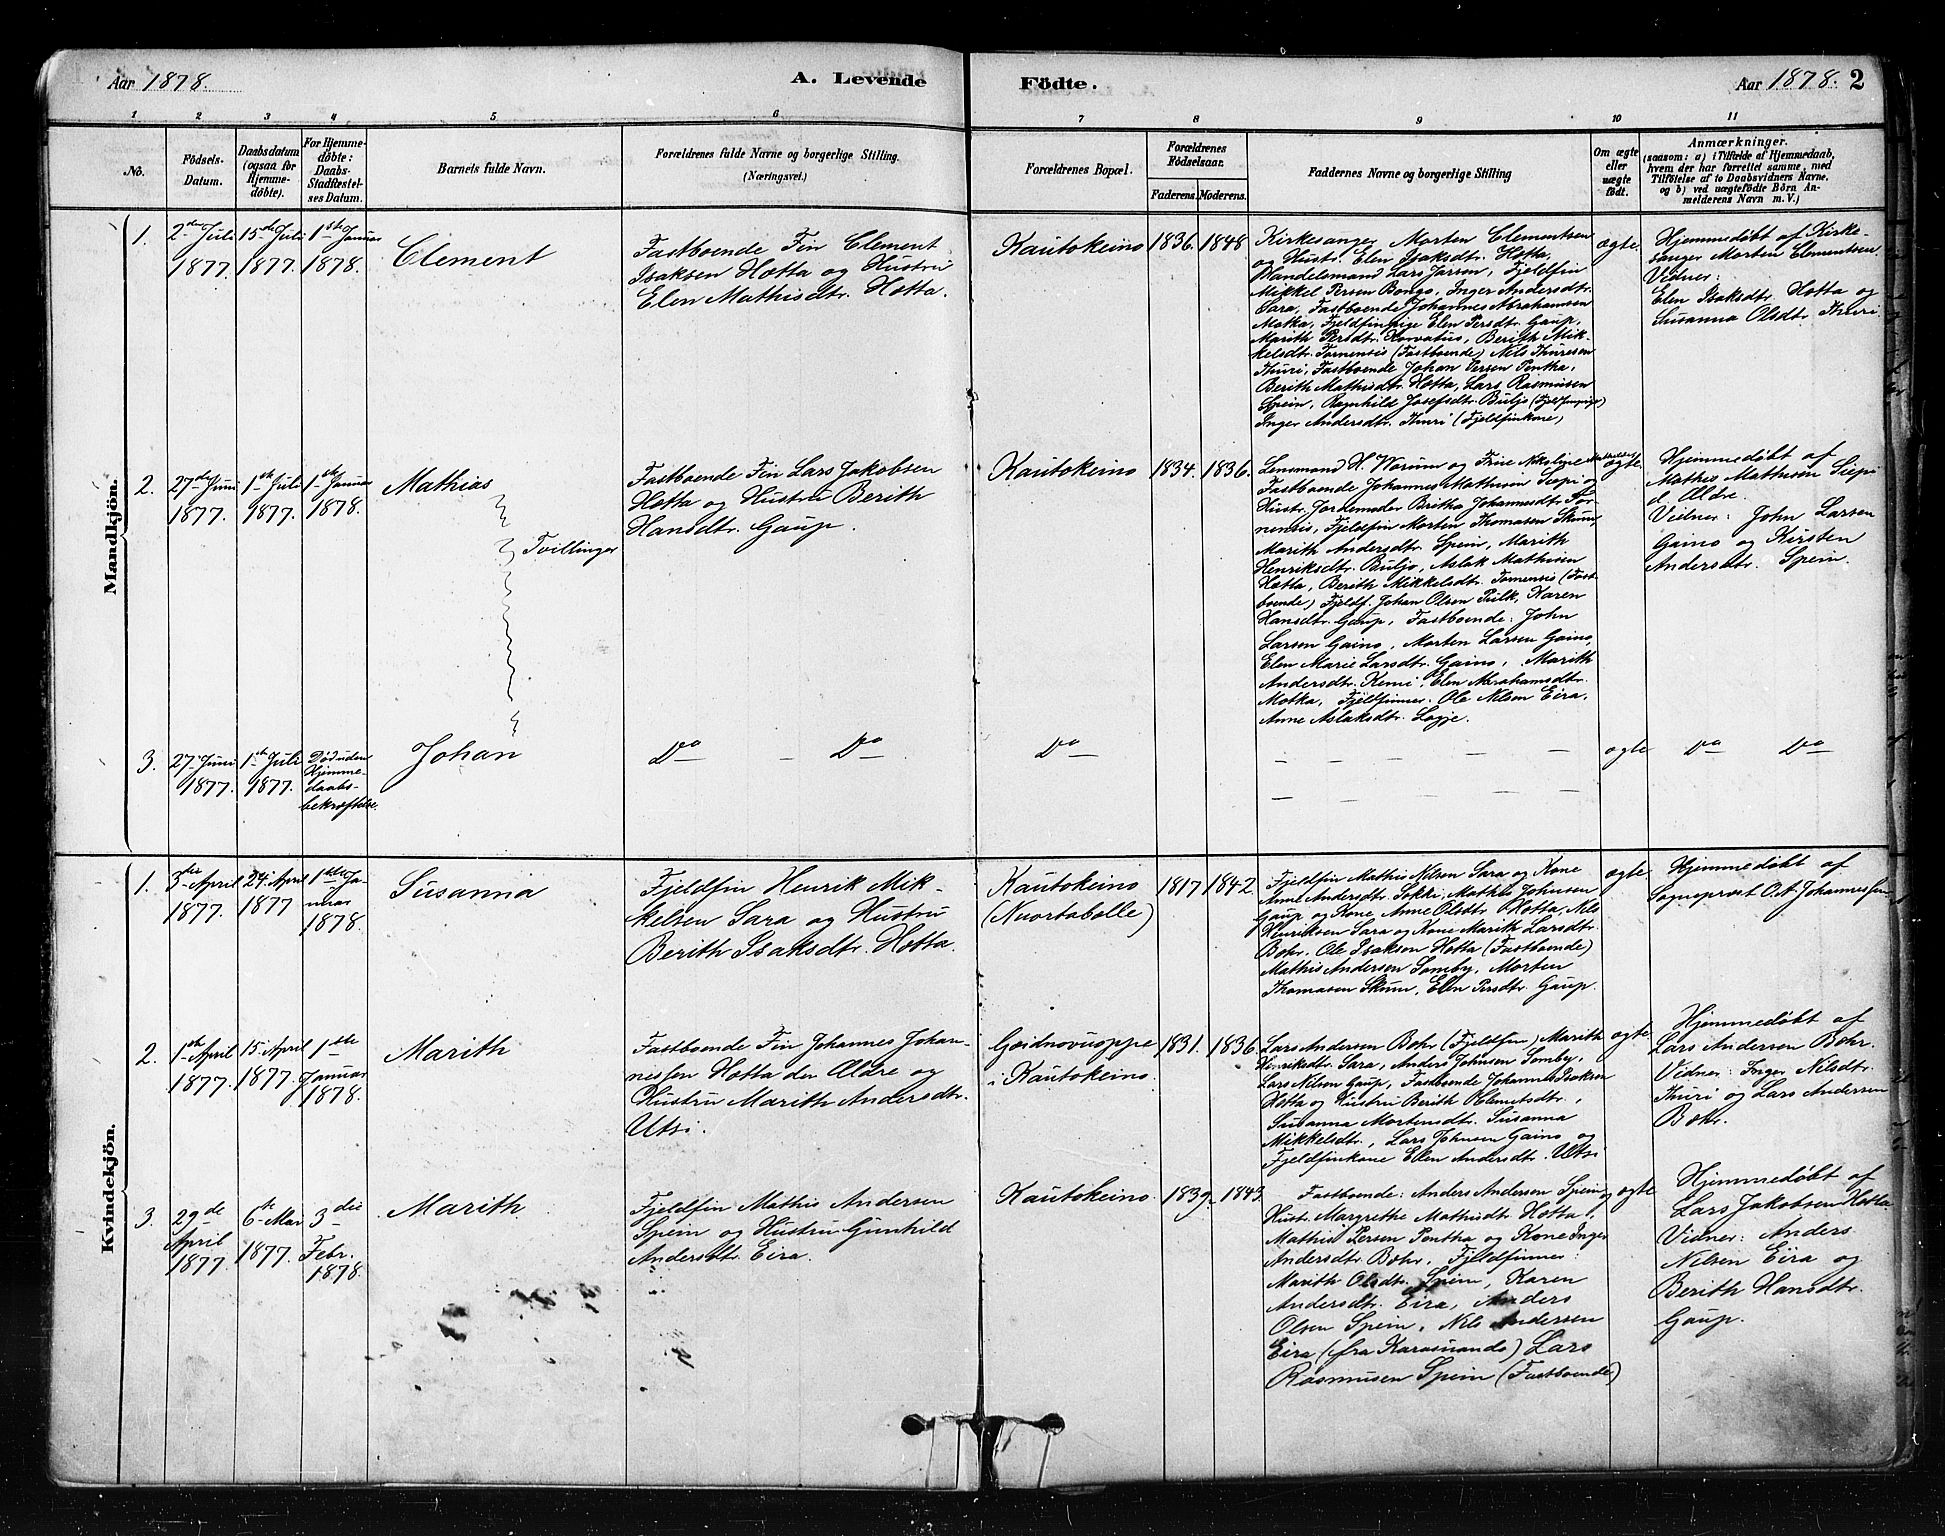 Aar 1878.
A. Levende
Födte.
Aar 1878. 2
1 2 3 4 5 6 7 8 9 10 11
No.
Födsels-
Datum.
Daabsdatum
(ogsaa for
Hjemme-
döbte).
For Hjemme-
döbte:
Daabs-
Stadfæstel-
ses Datum.
Barnets fulde Navn.
Forældrenes fulde Navne og borgerlige Stilling.
(Næringsvei.)
Forældrenes Bopæl.
Forældrenes
Födselsaar.
Faderens. Moderens.
Faddernes Navne og borgerlige Stilling
Om ægte
eller
uægte
födt.
Anmærkninger.
(saasom: a) i Tilfælde af Hjemmedaab,
hvem der har forrettet samme, med
Tilföielse af to Daabsvidners Navne,
og b) ved uægtefödte Börn An-
melderens Navn m. V.)
Mandkjön.
1.
2den Juli
1877.
15de Juli
1877.
1ste Januar
1878.
Clement
Fastboende Fin Clement
Isaksen Hotta og Hustru
Elen Mathisdtr. Hotta.
Kautokeino
1836. 1848
Kirkesanger Morten Clementsen
og Hustr. Elen Isaksdtr. Hotta,
Handelsmand Lars Jarsen, Fjeldfin
Mikkel Persen Bongo, Inger Andersdtr.
Sara, Fastboende Johannes Abrahamsen
Motka, Fjeldfinpige Elen Persdtr. Gaup,
Marith Persdtr. Korvatus, Berith Mik-
kelsdtr. Tornensis (Fastboende) Nils Thuresen
Thuri, Fastboende Johan Persen Pentha,
Berith Mathisdtr. Hotta, Lars Rasmusen
Spein, Ragnhild Josefsdtr. Buljo (Fjeldfinpige)
Inger Andersdtr. Thuri (Fjeldfinkone)
ægte
Hjemmedøbt af Kirke-
sanger Morten Clementsen.
Vidner:
Elen Isaksdtr. Hotta og
Susanna Olsdtr. Thuri.
2.
27de Juni
1877.
1ste Juli
1877.
1ste Januar
1878.
Mathias
Tvillinger
Fastboende Fin Lars Jakobsen
Hotta og Hustru Berith
Hansdtr. Gaup.
Kautokeino
1834. 1836.
Lensmand H. Worum og Frue
Fastboende Johannes Mathisen Siepi og
Hustr. Jordemoder Beritha Johannesdtr. Tor-
nensis, Fjeldfin Morten Thomasen Skum,
Marith Andersdtr. Spein, Marith
Henriksdtr. Buljo, Aslak Mathisen
Hotta, Berith Mikkelsdtr. Tornensis (Fast-
boende) Fjeldf. Johan Olsen Pulk, Karen
Hansdtr. Gaup, Fastboende: John
Larsen Gaino, Morten Larsen Gaino,
Elen Marie Larsdtr. Gaino, Marith
Andersdtr. Kemi, Elen Abrahamsdtr.
Motka, Fjeldfinner: Ole Nilsen Eira,
Anne Aslaksdtr. Logje.
ægte
Hjemmedøbt af
Mathis Mathisen Siepi
d. Ældre.
Vidner: John Larsen
Gaino og Kirsten
Andersdtr. Spein.
3.
27 Juni
1877.
1ste Juli
1877.
Død uden
Hjemme-
daabs-
bekræftelse.
Johan
Do – Do
Do
– – – – – –
ægte
Do Do
– – – – – –
Kvindekjön.
1.
3die April
1877.
24. April
1877
1ste Ja-
nuar
1878.
Susanna
Fjeldfin Henrik Mik-
kelsen Sara og Hustru
Berith Isaksdtr. Hotta.
Kautokeino
(Nuortabolle)
1817. 1842
Fjeldfin Mathis Nilsen Sara og Kone
Anne Andersdtr. Sokki, Mathis Johnsen
Gaup og Kone Anne Olsdtr. Hotta, Nils
Henriksen Sara og Kone Marith Larsdtr.
Bohr, Ole Isaksen Hotta (Fastboende)
Mathis Andersen Somby, Morten
Thomasen Skum, Elen Persdtr. Gaup.
ægte
Hjemmedøbt af
Sogneprest O. A. Johannessen.
2.
1ste April
1877.
15 April
1877.
1ste
Januar
1878.
Marith
Fastboende Fin Johannes Johan-
nessen Hotta den Ældre og
Hustru Marith Andersdtr.
Utsi.
Goidnovuoppe
i Kautokeino.
1831. 1836.
Lars Andersen Bohr (Fjeldfin) Marith
Henriksdtr. Sara, Anders Johnsen Somby,
Lars Nilsen Gaup, Fastboende Johannes Isaksen
Hotta og Hustru Berith Klemetsdtr.,
Susanna Mortensdtr. Susanna
Mikkelsdtr., Lars Johnsen Gaino og
Fjeldfinkone Elen Andersdtr. Utsi
ægte
Hjemmedøbt af
Lars Andersen Bohr.
Vidner: Inger Nilsdtr.
Thuri og Lars Andersen
Bohr.
3.
29de
April
1877.
6te Mai
1877.
3die
Febr.
1878.
Marith
Fjeldfin Mathis Andersen
Spein og Hustru Gunhild
Andersdtr. Eira.
Kautokeino.
1839. 1843.
Fastboende: Anders Andersen Spein og
Hust. Margrethe Mathisdtr. Hotta,
Mathis Persen Pentha og Kone Inger
Andersdtr. Bohr, Fjeldfinner:
Marith Olsdtr. Spein, Karen
Andersdtr. Eira, Anders
Olsen Spein, Nils Andersen
Eira (fra Karasuando) Lars
Rasmusen Spein (Fastboende)
ægte
Hjemmedøbt af
Lars Jakobsen Hotta
Vidner: Anders
Nilsen Eira og
Berith Hansdtr.
Gaup.